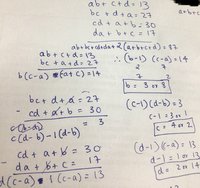 ab + c + d = 13
bc + d + a = 27
cd + a + b = 30
da + b + c = 17
ab+bc+cd+da+2(a+b+c+d)=87
ab + c + d = 13
bc + a + d = 27
b(c-a) - (a+c) = 14
(b-1) (c-a) = 14
2 7
7 2
b = 3 or 8
bc + d + a = 27
- cd + a + b = 30
c(b-d) = 3
c(d-b) - 1(d-b)
(c-1)(d-b) = 3
c-1 = 3 or 1
c = 4 or 2
- cd + a + b = 30
da + b + c = 17
d(c-a) - 1(c-a) = 13
(d-1)(c-a) = 13
d-1 = 1 or 13
d = 2 or 14